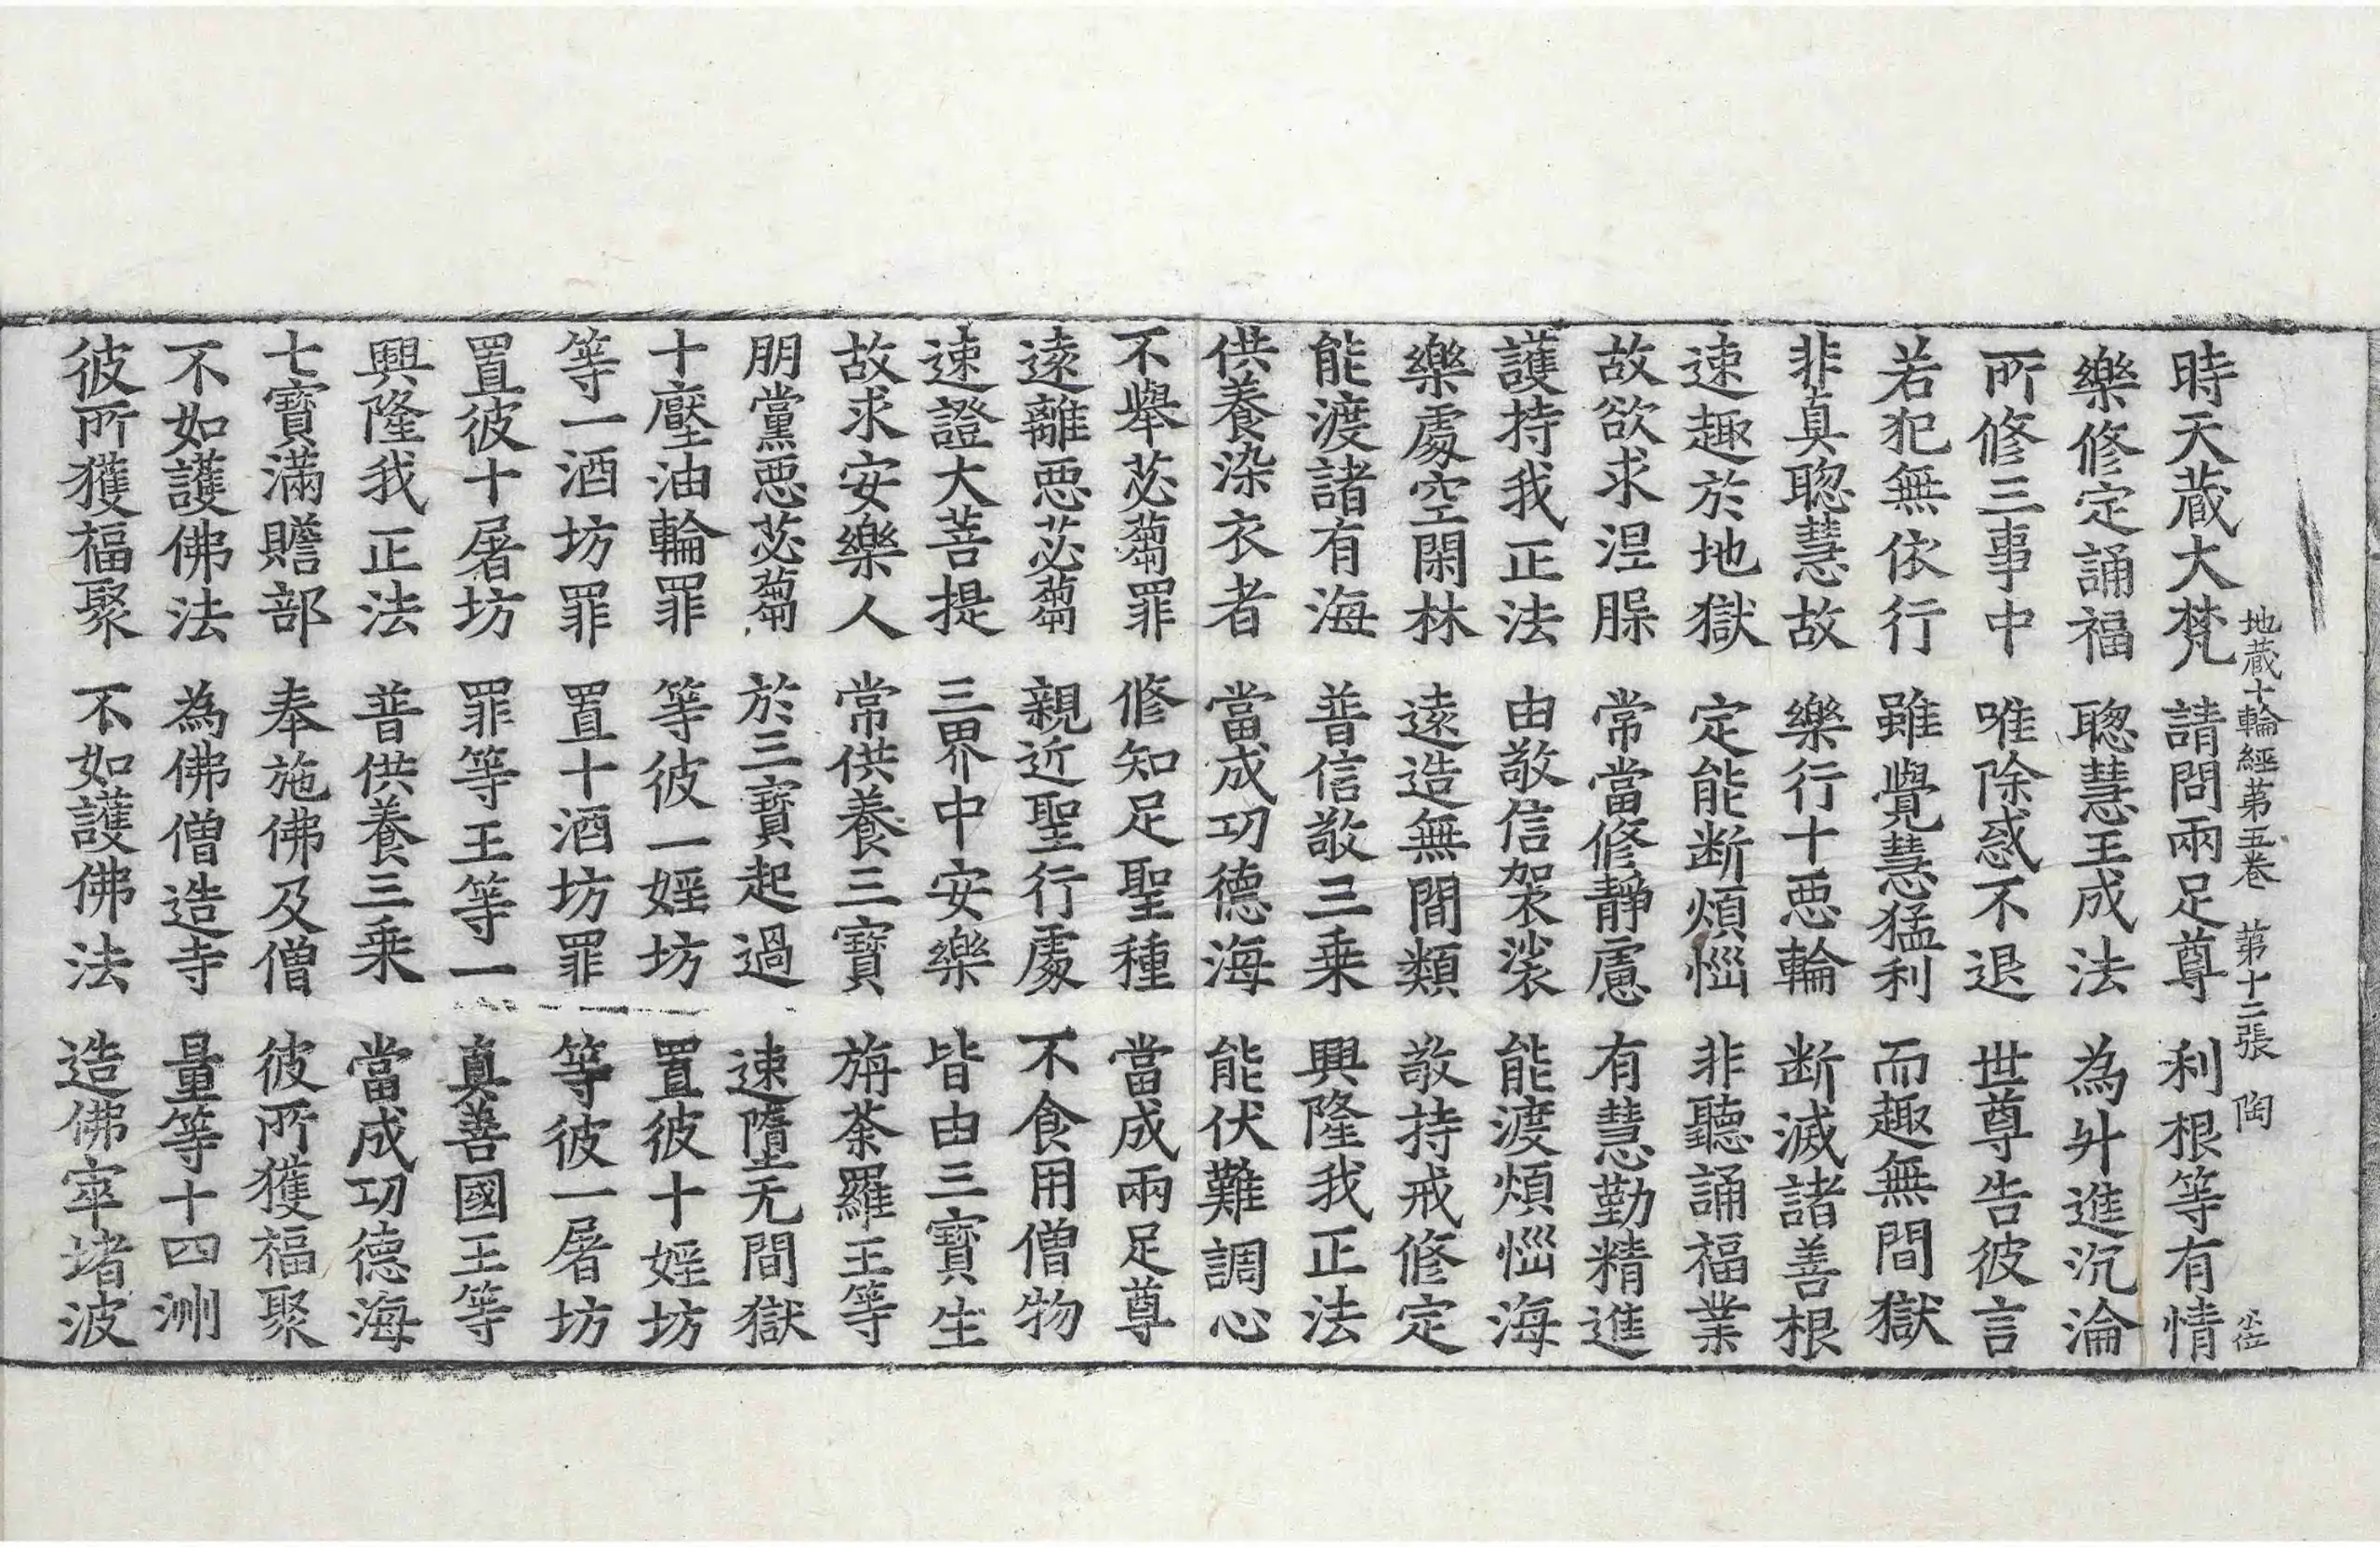 地蔵十輪經第五卷 第十二張 陶
時天蔵大梵 請問兩足尊 利根等有情
樂修定誦福 聦慧王成法 為升進沉淪
所修三事中 唯除惑不退 世尊告彼言
若犯無依行 雖覺慧猛利 而趣無間獄
非真聦慧故 樂行十惡輪 断滅諸善根
速趣於地獄 定能断煩惱 非聽誦福業
故欲求涅槃 常當修靜慮 有慧勤精進
護持我正法 由敬信袈裟 能渡煩惱海
樂處空閑林 遠造無間類 敬持戒修定
能渡諸有海 普信敬三乗 興隆我正法
供養染衣者 當成功德海 能伏難調心
不舉苾蒭罪 修知足聖種 當成兩足尊
遠離惡苾蒭 親近聖行處 不食用僧物
速證大菩提 三界中安樂 皆由三寶生
故求安樂人 常供養三寶 旃荼羅王等
朋黨惡苾蒭 於三寶起過 速墮无間獄
十壓油輪罪 等彼一婬坊 置彼十婬坊
等一酒坊罪 置十酒坊罪 等彼一屠坊
置彼十屠坊 罪等王等一 真善國王等
興隆我正法 普供養三乗 當成功德海
七寶滿贍部 奉施佛及僧 彼所獲福聚
不如護佛法 為佛僧造寺 量等十四洲
彼所獲福聚 不如護佛法 造佛窣堵波